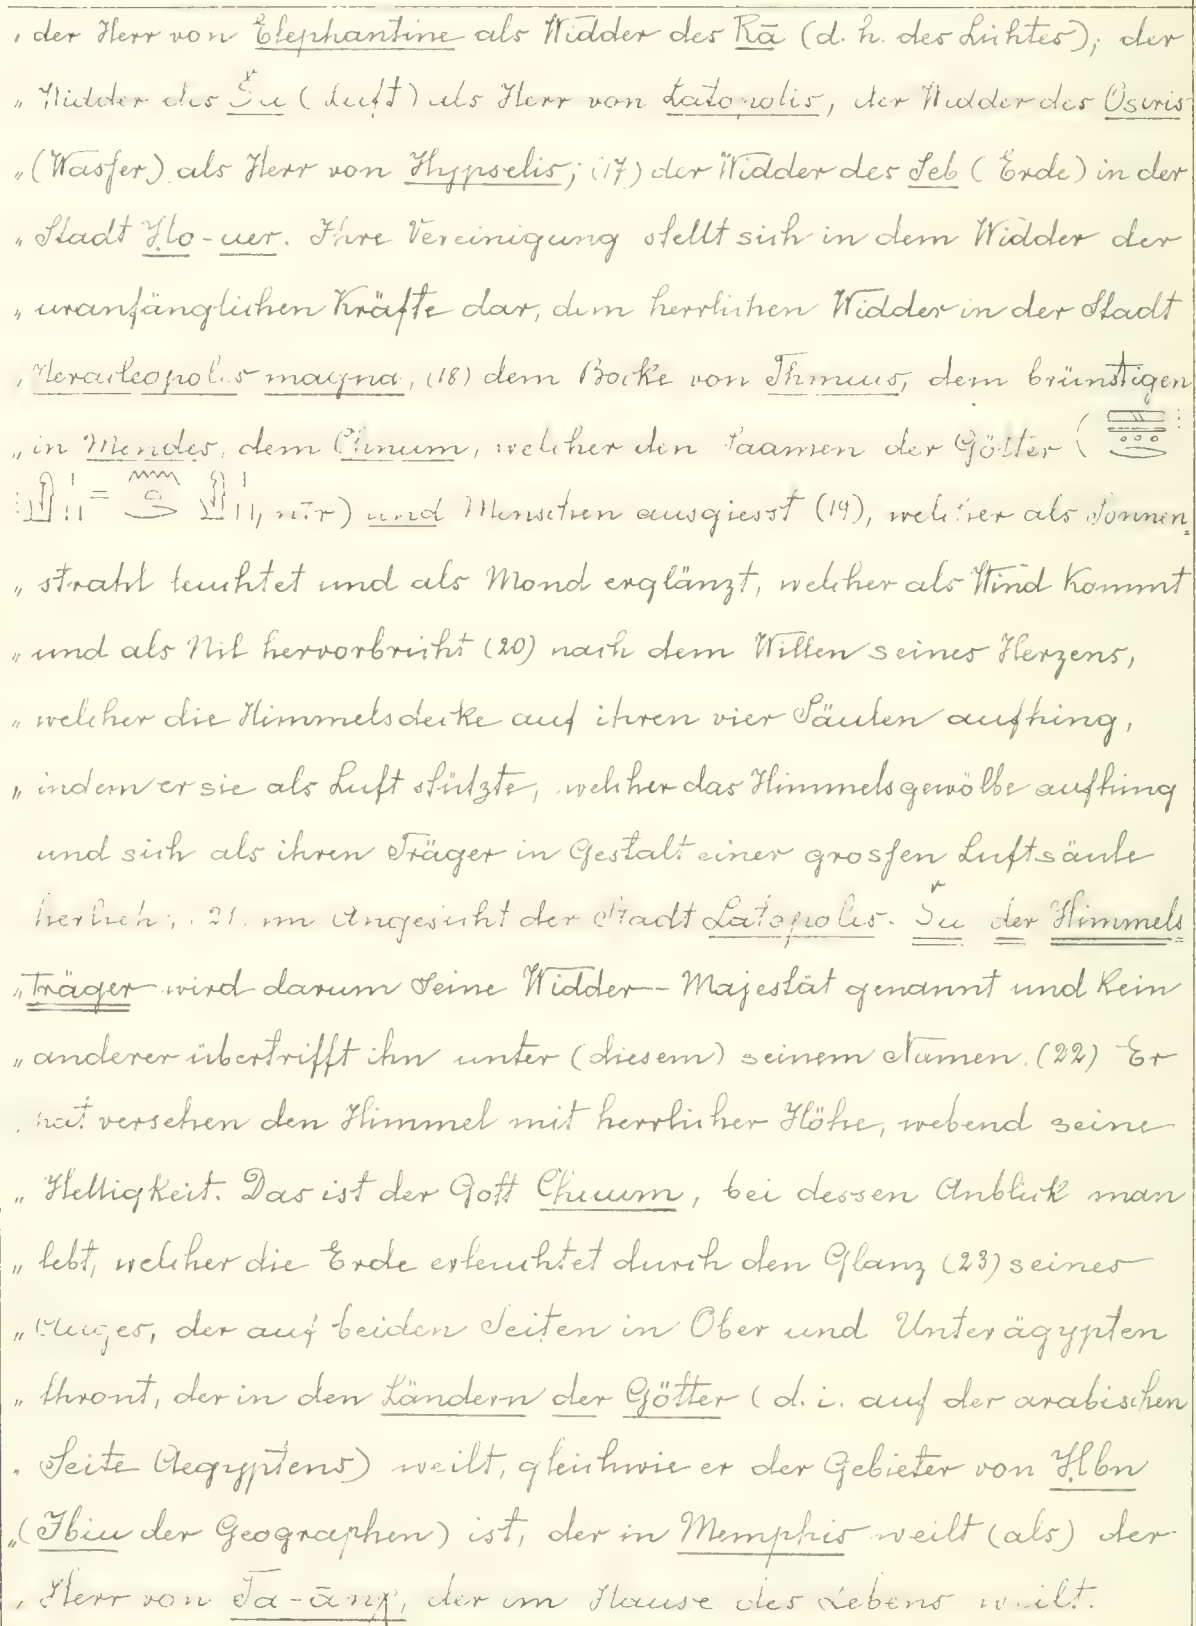 „ der Herr von Elephantine als Widder des Rā (d. h. des Lichtes), der
„ Widder des Šu (Luft) als Herr von Latopolis, der Widder des Osiris
„ (Wasser) als Herr von Hypselis; (17) der Widder des Seb (Erde) in der
„ Stadt Ḥo-uer. Ihre Vereinigung stellt sich in dem Widder der
„ uranfänglichen Kräfte dar, dem herrlichen Widder in der Stadt
„ Heracleopolis magna, (18) dem Bocke von Thmuus, dem brünstigen
„ in Mendes, dem Chnum, welcher den Saamen der Götter (
=, nTr) und Menschen ausgiesst (19), welcher als Sonnen-
„ strahl leuchtet und als Mond erglänzt, welcher als Wind kommt
„ und als Nil hervorbricht (20) nach dem Willen seines Herzens,
„ welcher die Himmelsdecke auf ihren vier Säulen aufhing,
„ indem er sie als Luft stützte, welcher das Himmelsgewölbe aufhing
und sich als ihren Träger in Gestalt einer grossen Luftsäule
herlieh, (21) im Angesicht der Stadt Latopolis. Šu der Himmels
„ träger wird darum Seine Widder-Majestät genannt und kein
„ anderer übertrifft ihn unter (diesem) seinem Namen. (22) Er
„ hat versehen den Himmel mit herrlicher Höhe, webend seine
„ Helligkeit. Das ist der Gott Chnum, bei dessen Anblick man
„ lebt, welcher die Erde erleuchtet durch den Glanz (23) seines
„ Auges, der auf beiden Seiten in Ober und Unterägypten
„ thront, der in den Ländern der Götter (d. i. auf der arabischen
„ Seite Aegyptens) weilt, gleichwie er der Gebieter von Ḥbn
„ (Ibiu der Geographen) ist, der in Memphis weilt (als) der
„ Herr von Ta-ānχ, der im Hause des Lebens weilt.